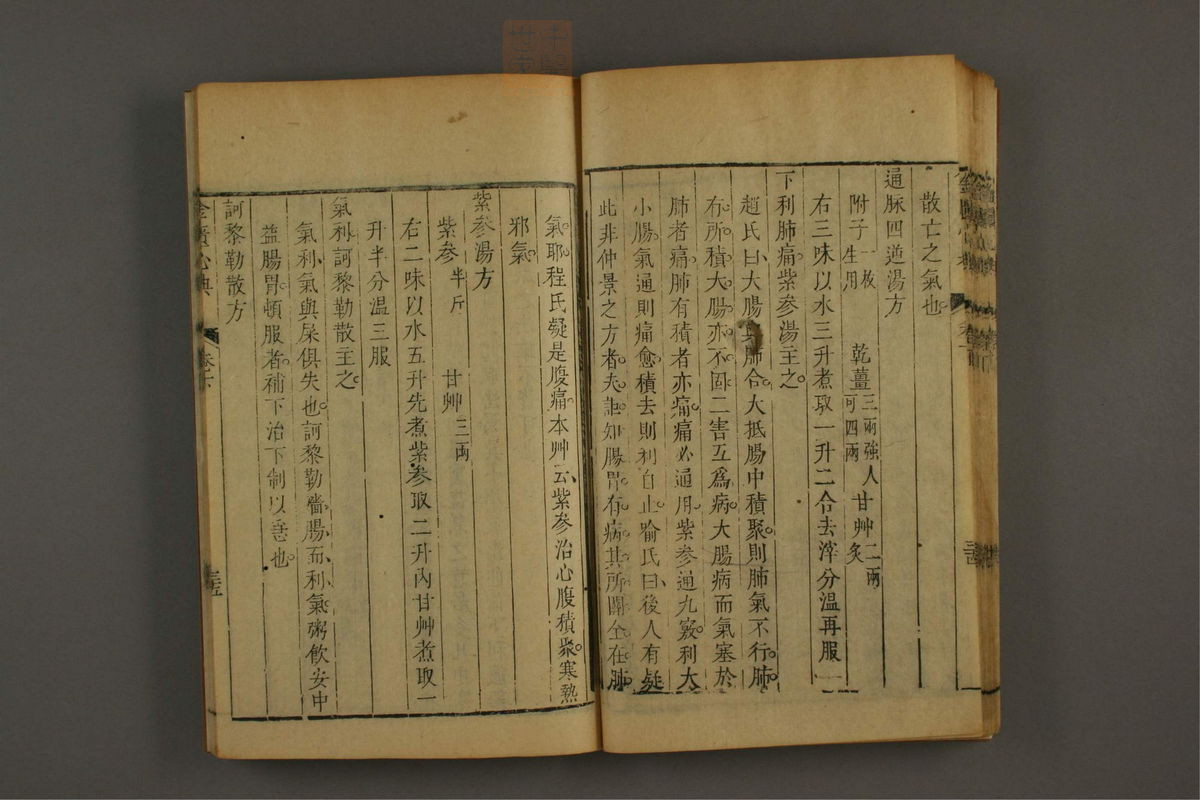 散亡之氣也
通脉四逆湯方
附子一枚生用 乾薑三兩強人可四兩 甘艸二兩炙
右三味以水三升煮取一升二合去滓分溫再服
下利肺痛紫參湯主之
趙氏曰大腸與肺合大抵腸中積聚則肺氣不行肺
有所積大腸亦不固二害互為病大腸病而氣塞於
肺者痛肺有積者亦痛痛必通用紫參通九竅利大
小腸氣通則痛愈積去則利自止喻氏曰後人有疑
此非仲景之方者夫詎知腸胃有病其所關全在肺
氣耶程氏疑是腹痛本艸云紫參治心腹積聚寒熱
邪氣
紫參湯方
紫參半斤 甘艸三兩
右二味以水五升先煮紫參取二升內甘艸煮取一
升半分溫三服
氣利訶黎勒散主之
氣利氣與屎俱失也訶黎勒濇腸而利氣粥飲安中
益腸胃頓服者補下治下制以急也
訶黎勒散方
金匱心典 卷下 三五